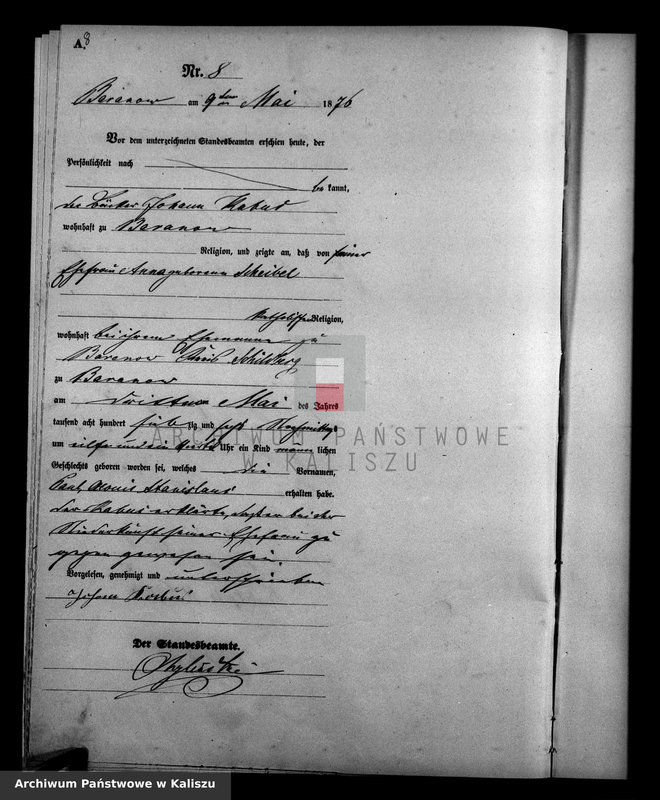 A. 8
Nr. 8
Baranow am 9ten Mai 1876
Vor dem unterzeichneten Standesbeamten erschien heute, der
Persönlichkeit nach
be kannt,
der Johann Kabus
wohnhaft zu Baranow
Religion, und zeigte an, daß von seiner
Ehefrau Anna geborenen Scheibel
katholischen Religion,
wohnhaft bei ihrem Ehemanne zu
Baranow Kreis Schildberg
zu Baranow
am dritten Mai des Jahres
tausend acht hundert siebzig und sechs Nachmittags
um eilf und ein Viertel Uhr ein Kind männ lichen
Geschlechts geboren worden sei, welches die Vornamen,
Paul Alois Stanislaus erhalten habe.
Der Kabus erklärte, daß er bei der
Niederkunft seiner Ehefrau zu
gegen gewesen sei.
Vorgelesen, genehmigt und unterschrieben
Johann Kabus
Der Standesbeamte.
ARCHIWUM PAŃSTWOWE
W KALISZU
Archiwum Państwowe w Kaliszu